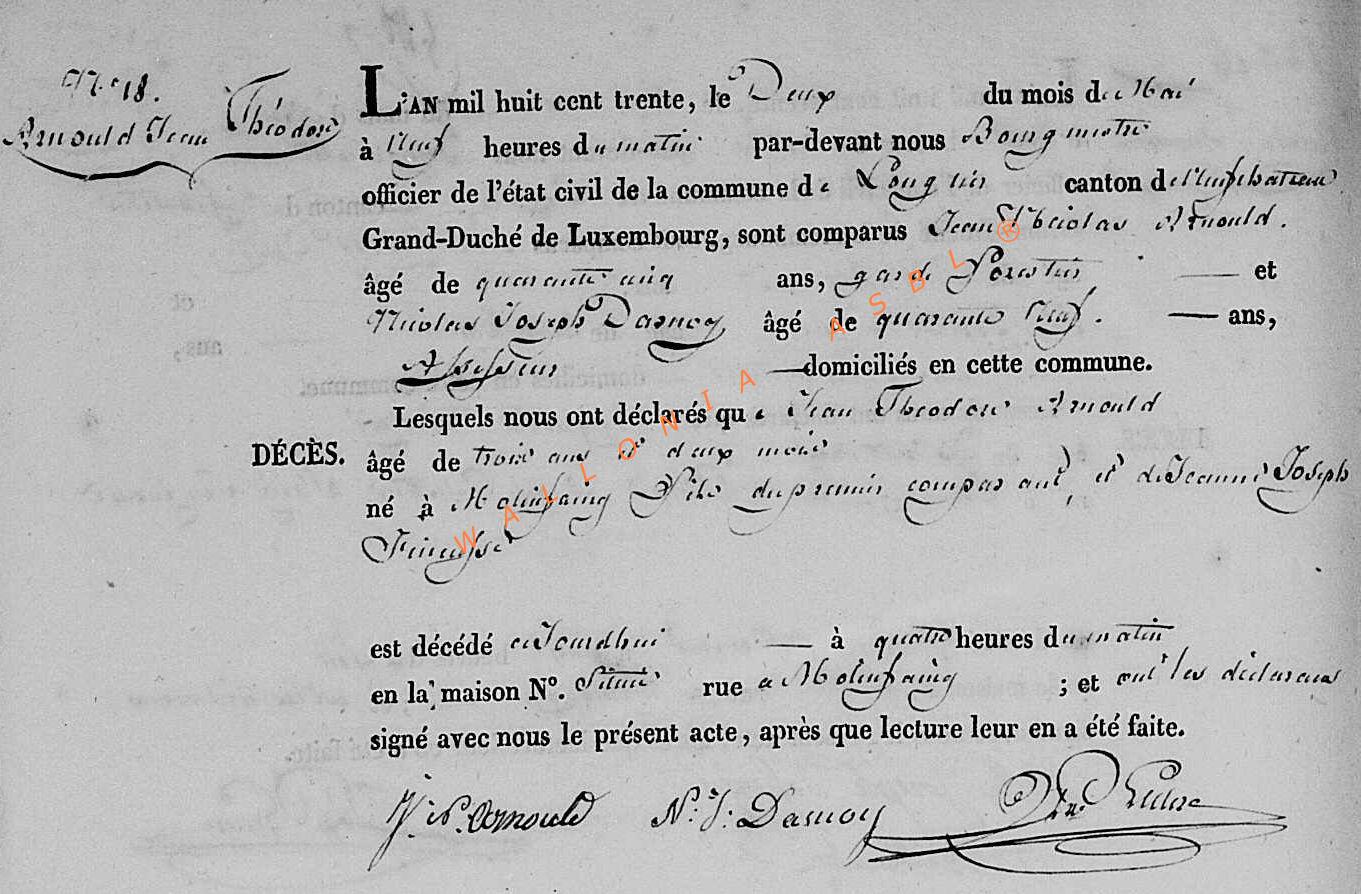 N° 18.
Arnould Jean Théodore
L'AN mil huit cent trente, le Deux du mois de Mai
à Neuf heures du matin par-devant nous Bourgmestre
officier de l'état civil de la commune de Longlier canton de Neufchateau
Grand-Duché de Luxembourg, sont comparus Jean Nicolas Arnould.
âgé de quarante cinq ans, garde Forestier et
Nicolas Joseph Dasnoy âgé de quarante Neuf. ans,
Assesseur domiciliés en cette commune.
Lesquels nous ont déclarés que Jean Théodore Arnould
DÉCÈS. âgé de trois ans et deux mois
né à Molinfaing Fils du premier comparant, et de Jeanne Joseph
est décédé aujourdhui à quatre heures du matin
en la maison N°. Située rue à Molinfaing ; et ont les déclarans
signé avec nous le présent acte, après que lecture leur en a été faite.
J. N. Arnould N. J. Dasnoy
WALLONIA ASBL ®